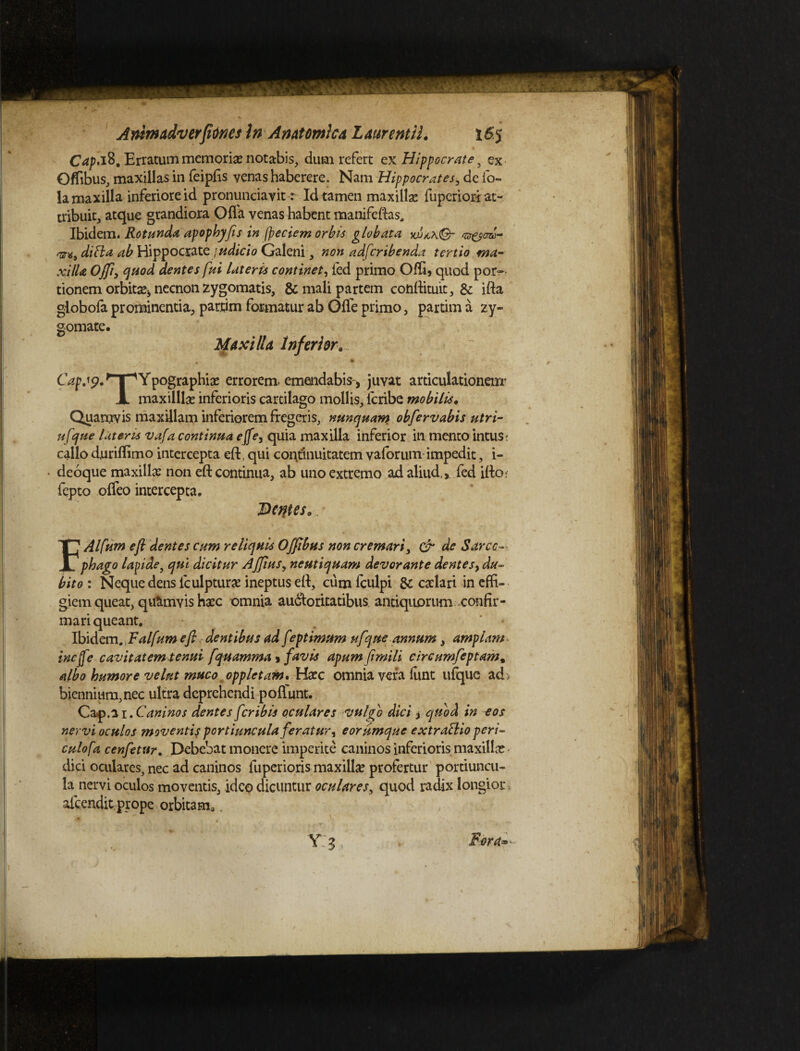 Animadversiones in Anatomica Laurentii. 165
Cap.18. Erratum memoriæ notabis, dum refert ex Hippocrate, ex
Ossibus, maxillas in seipsis venas haberere. Nam Hippocrates, de so-
la maxilla inferiore id pronunciavit : Id tamen maxillæ superiori at-
tribuit, atque grandiora Ossa venas habent manifestas.
Ibidem. Rotunda apophysis in speciem orbis globata κύκλ@-
dicta ab Hippocrate judicio Galeni, non adscribenda tertio ma-
xillæ Ossi, quod dentes sui lateris continet, sed primo Ossi, quod por-
tionem orbitæ, necnon zygomatis, & mali partem constituit, & ista
globosa prominentia, partim formatur ab Osse primo, partim à zy-
gomate.
Maxilla Inferior.
Cap.19. TYpographiæ errorem emendabis, juvat articulationem
maxilllæ inferioris cartilago mollis, scribe mobilis.
Quamvis maxillam inferiorem fregeris, nunquam observabis utri-
usque lateris vasa continua esse, quia maxilla inferior in mento intus
callo durissimo intercepta est, qui continuitatem vasorum impedit, i-
deóque maxillæ non est continua, ab uno extremo ad aliud, sed isto
septo osseo intercepta.
Dentes.
FAlsum est dentes cum reliquis Ossibus non cremari, & de Sarco-
phago lapide, qui dicitur Assius, neutiquam devorante dentes, du-
bito : Neque dens sculpturæ ineptus est, cùm sculpi & cælari in effi-
giem queat, quàmvis hæc omnia auctoritatibus antiquorum confir-
mari queant.
Ibidem. Falsum est dentibus ad septimum usque annum, amplam
inesse cavitatem tenui squamma, favis apum simili circumseptam,
albo humore velut muco oppletam. Hæc omnia vera sunt usque ad
biennium, nec ultra deprehendi possunt.
Cap.21. Caninos dentes scribis oculares vulgò dici, quòd in eos
nervi oculos moventis portiuncula feratur, eorúmque extractio peri-
culosa censetur. Debebat monere imperitè caninos inferioris maxillæ
dici oculares, nec ad caninos superioris maxillæ profertur portiuncu-
la nervi oculos moventis, ideo dicuntur oculares, quod radix longior
ascendit prope orbitam.
Y 3 Fora-